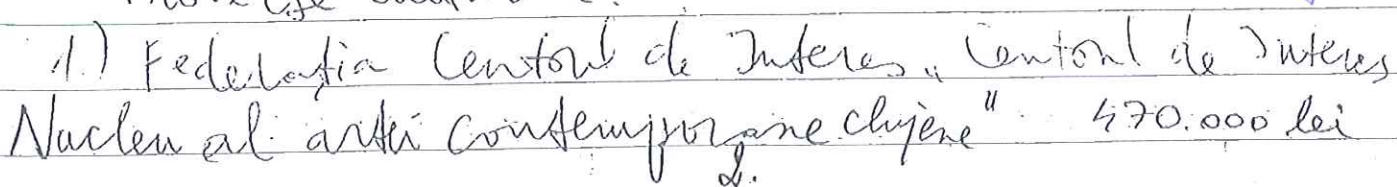 1.) Federația Centrul de Interes „Centrul de Interes
Nucleu al artei contemporane clujene" 470.000 lei
2.